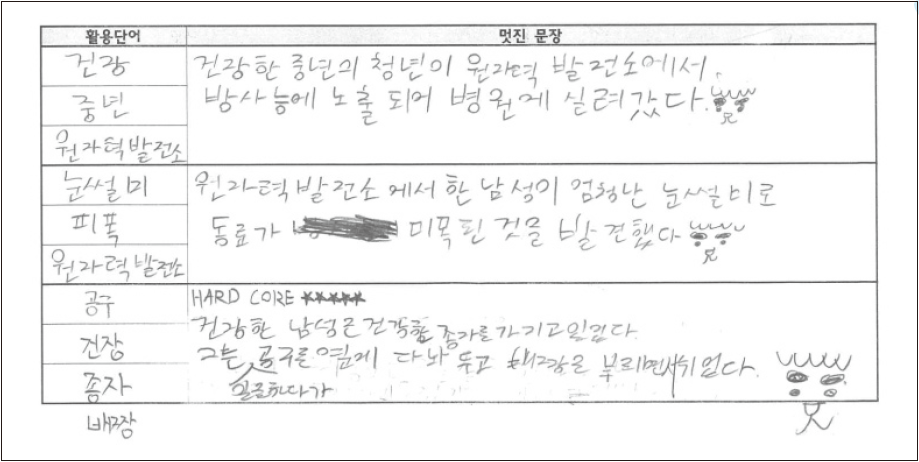 활용단어
멋진 문장
건강
중년
원자력발전소
건강한 중년의 청년이 원자력 발전소에서
방사능에 노출 되어 병원에 실려갔다.
눈썰미
피폭
원자력발전소
원자력발전소에서 한 남성이 엄청난 눈썰미로
동료가 피폭된 것을 발견했다
공구
건장
종자
배짱
HARD CORE *****
건장한 남성은 건강한 종자를 가지고 일있다
그는 공구를 옆에 다 놔 두고 배짱을 부리면서 쉬었다.
일을 하다가